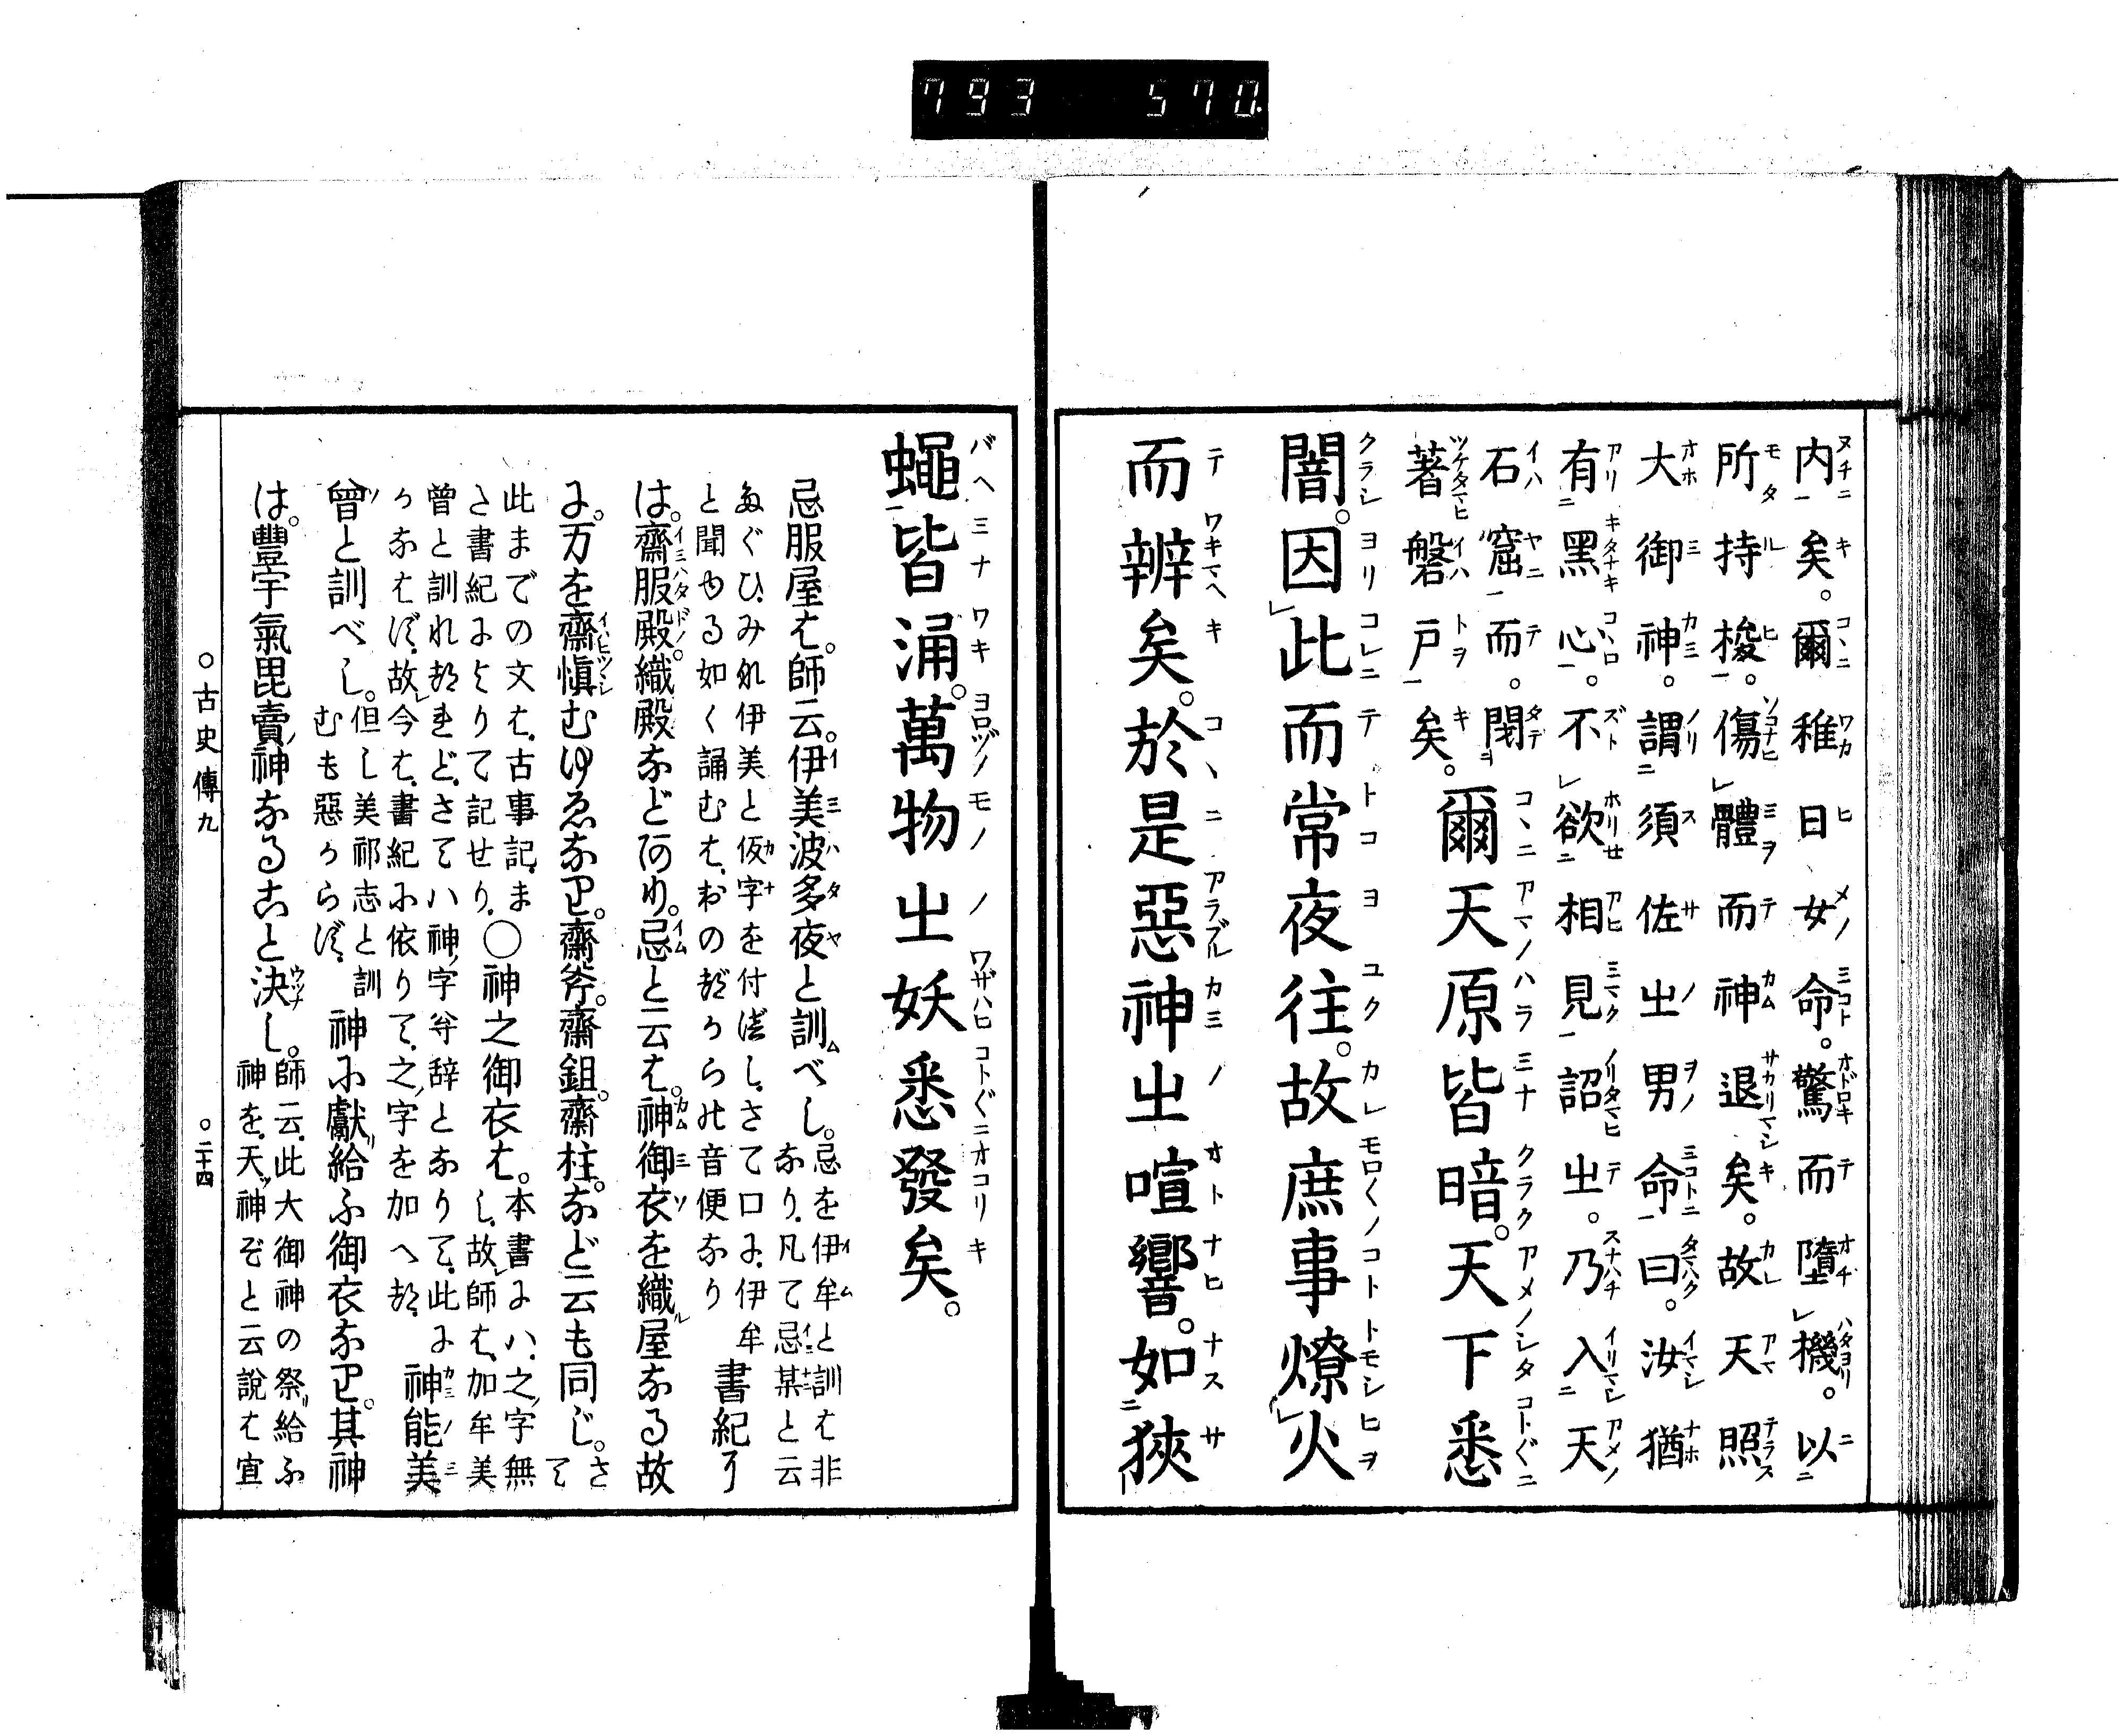 793 570.
内矣。爾稚日女命。驚而墮機。以
所持梭。傷體而神退矣。故天照
大御神。謂須佐之男命曰。汝猶
有黑心。不欲相見詔出。乃入天
石窟而。閇
著磐戸矣。爾天原皆暗。天下悉
闇。因此而常夜往。故庶事燎火
而辨矣。於是惡神之喧響。如狹
蠅皆涌。萬物之妖悉發矣。
忌服屋は。師云。伊美波多夜と訓べし。忌を伊牟と訓は非
なり。凡て忌某と云
たぐひ、みな伊美と仮字を付べし、さて口に、伊牟
と聞ゆる如く誦むは、おのづからの音便なり 書紀に
は。齋服殿。織殿などあり。忌と云は。神御衣を織屋なる故
に。万を齋愼むゆゑなり。齋斧。齋鉏。齋柱。など云も同じ。さて
此までの文は、古事記、ま
た書紀によりて記せり、○神之御衣は。本書にハ、之字無
し、故師は、加牟美
曾と訓れつれど、さてハ神ノ字弁辞となりて、此に
かなはず、故今は、書紀に依りて、之ノ字を加へつ、神能美
曾と訓べし。但し美祁志と訓
むも惡からず、神に獻給ふ御衣なり。其神
は。豐宇氣毘賣神なること決し。師云、此大御神の祭給ふ
神を、天ツ神ぞと云説は宜
○古史傳九 ○二十四